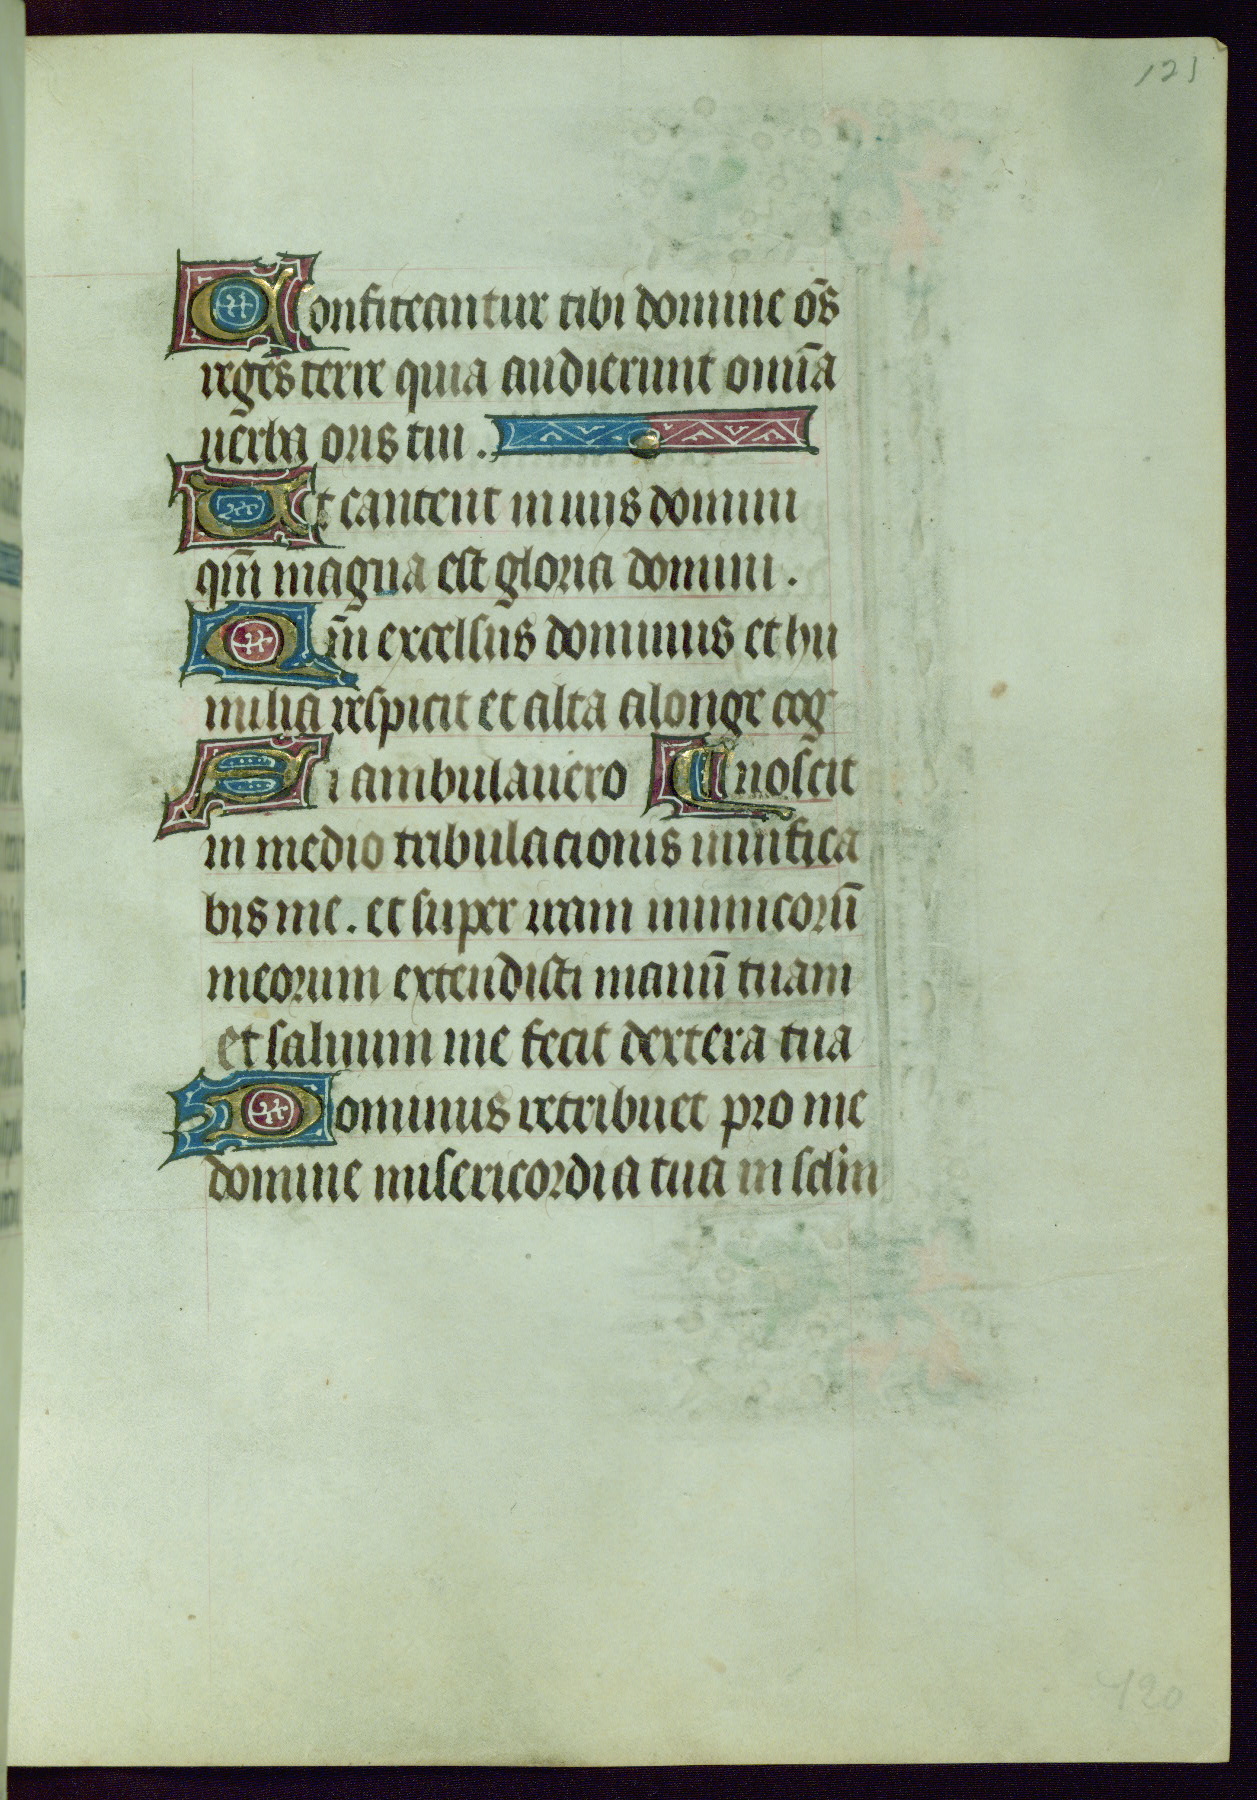 121
Confiteantur tibi domine oēs
reges terre quia audierunt omīa
uerba oris tui .
Et cantent in uiis domini
qm̄ magna est gloria domini .
Qm̄ excelsus dominus et hu
milia respicit et alta a longe cog
Si ambulauero noscit
in medio tribulacionis uiuifica
bis me . et super iram inimicorū
meorum extendisti manū tuam
et saluum me fecit dextera tua
Dominus retribuet pro me
domine misericordia tua in sclm
120